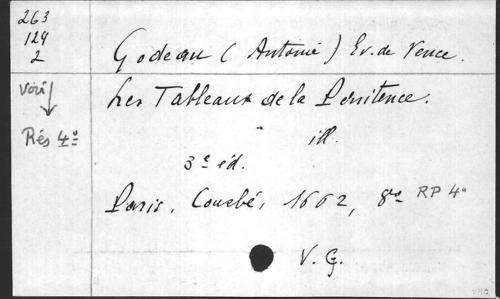 263
124
2
Godeau (Antoine) Ev. de Vence.
Voir
Les Tableaux de la Pénitence.
Rés 4º
ill.
3e éd.
Paris, Courbé, 1662, 8º RP 4º
V. G.